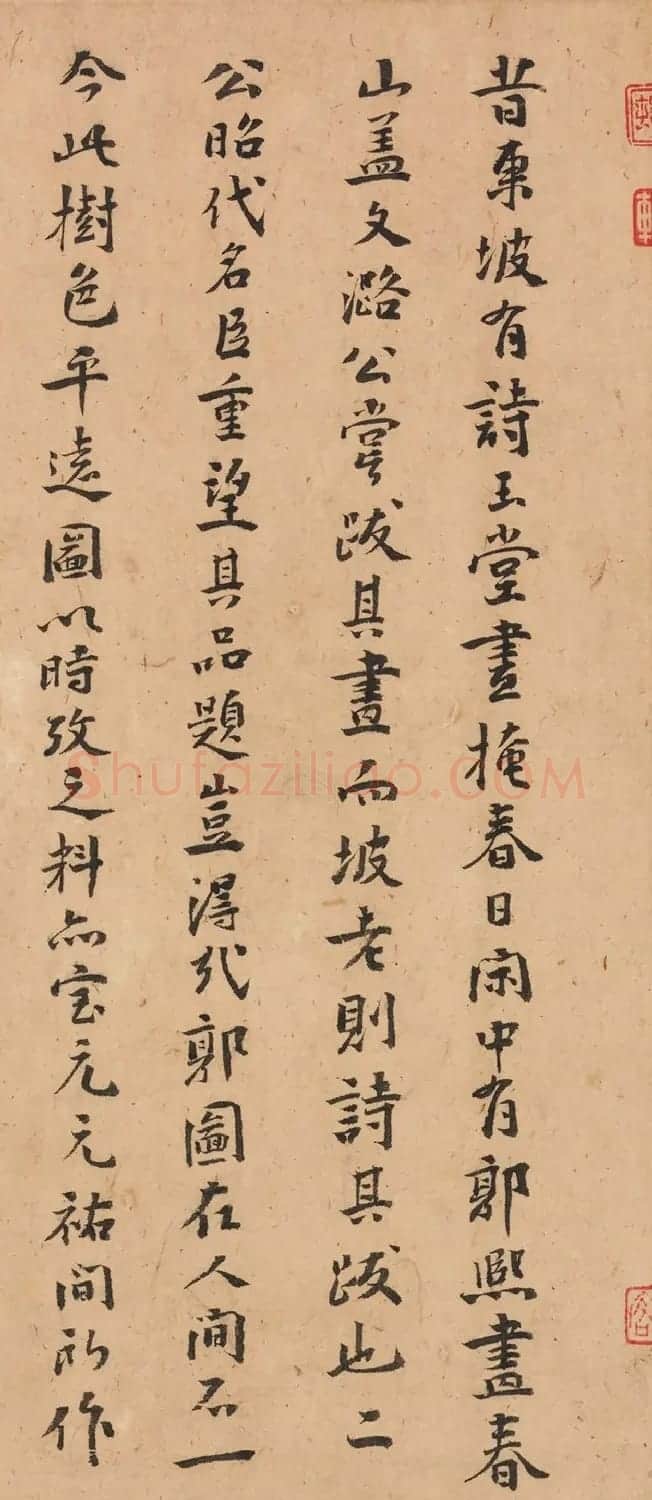 昔東坡有詩玉堂晝掩春日閑中有郭熙畫春
山盖文潞公嘗跋其畫而坡老則詩其跋也二
公昭代名臣重望其品題豈淂

郭圖在人间不一
今此樹色平逺圖以時攷之料亦宝元元祐间所作
Shufaziliao.COM